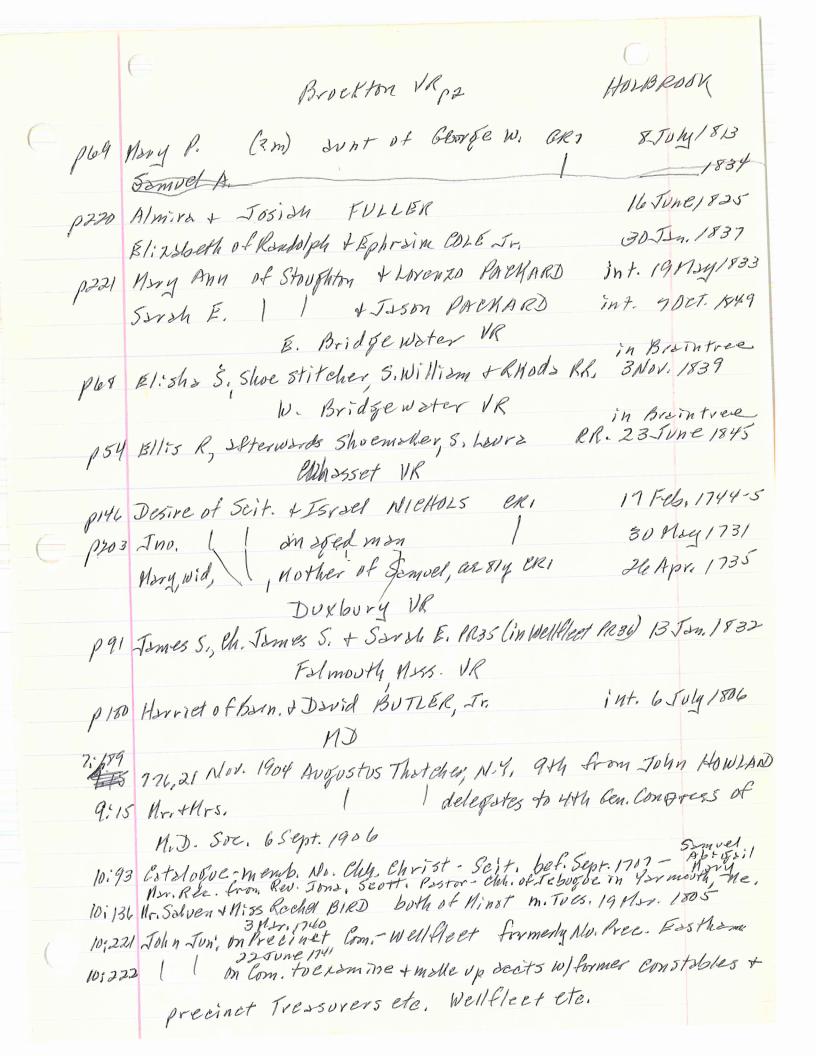 Brockton VR p2 HOLBROOK
p69 Mary P. (2m) aunt of George W. GR7 8 July 1813
Samuel A. | 1834
p220 Almira + Josiah FULLER 16 June 1825
Elizabeth of Randolph + Ephraim COLE Jr. 30 Jan. 1837
p221 Mary Ann of Stoughton + Lorenzo PACKARD int. 19 May 1833
Sarah E. | | + Jason PACKARD int. 7 Oct. 1849
E. Bridgewater VR
in Braintree
p68 Elisha S., Shoe stitcher, S. William + Rhoda RR. 3 Nov. 1839
W. Bridgewater VR
in Braintree
p54 Ellis R, afterwards Shoemaker, S. Laura RR. 23 June 1845
Cohasset VR
p146 Desire of Scit. + Israel NICHOLS CR1 17 Feb. 1744-5
p203 Jno. | | an aged man | 30 May 1731
Mary, wid, , Mother of Samuel, a. 81y CR1 26 Apr. 1735
Duxbury VR
p91 James S., Ch. James S. + Sarah E. PR35 (in Wellfleet PR36) 13 Jan. 1832
Falmouth, Mass. VR
p180 Harriet of Barn. + David BUTLER, Jr. int. 6 July 1806
MD
7:189
776, 21 Nov. 1904 Augustus Thatcher, N.Y. 9th from John HOWLAND
9:15 Mr. + Mrs. | | delegates to 4th Gen. Congress of
M.D. Soc. 6 Sept. 1906
Samuel
Abigail
10:93 Catalogue-memb. No. Chh. Christ - Scit. bef. Sept. 1707 - Mary
Mar. Rec. from Rev. Jona. Scott. Pastor - Chh. of Jebogue in Yarmouth, Me.
10:136 Mr. Salven + Miss Rachel BIRD both of Minot m. Tues. 19 Mar. 1805
3 Mar. 1740
10:221 John Jun. on Precinct Com. - Wellfleet formerly No. Prec. Eastham
22 June 1741
10:222 | | on Com. to examine + make up accts w/ former constables +
precinct Treasurers etc. Wellfleet etc.